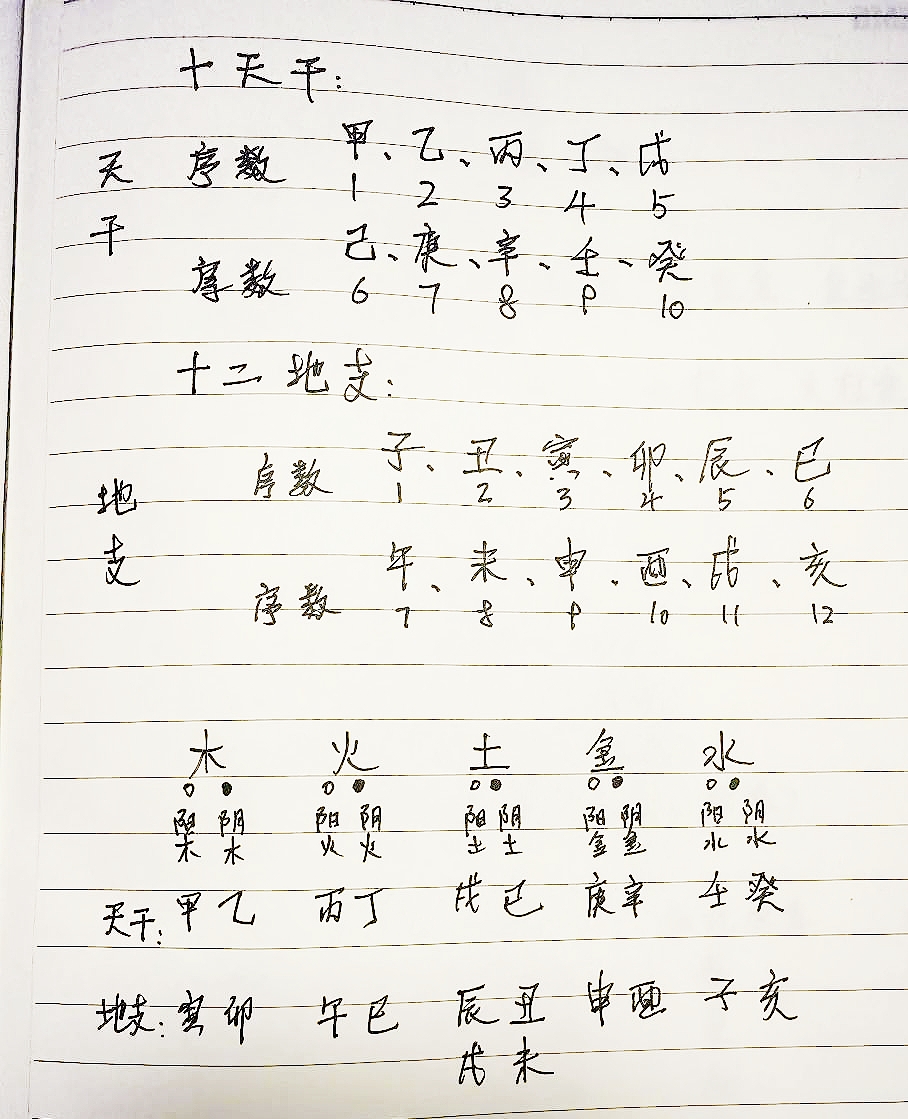 十天干：
天 序数 甲、乙、丙、丁、戊
1 2 3 4 5
干
己、庚、辛、壬、癸
序数 6 7 8 9 10
十二地支：
子、丑、寅、卯、辰、巳
地 序数 1 2 3 4 5 6
支 午、未、申、酉、戌、亥
序数 7 8 9 10 11 12
木 火 土 金 水
○● ○● ○● ○● ○●
阳 阴 阳 阴 阳 阴 阳 阴 阳 阴
木 木 火 火 土 土 金 金 水 水
天干：甲 乙 丙 丁 戊 己 庚 辛 壬 癸
地支：寅 卯 午 巳 辰 丑 申 酉 子 亥
戌 未